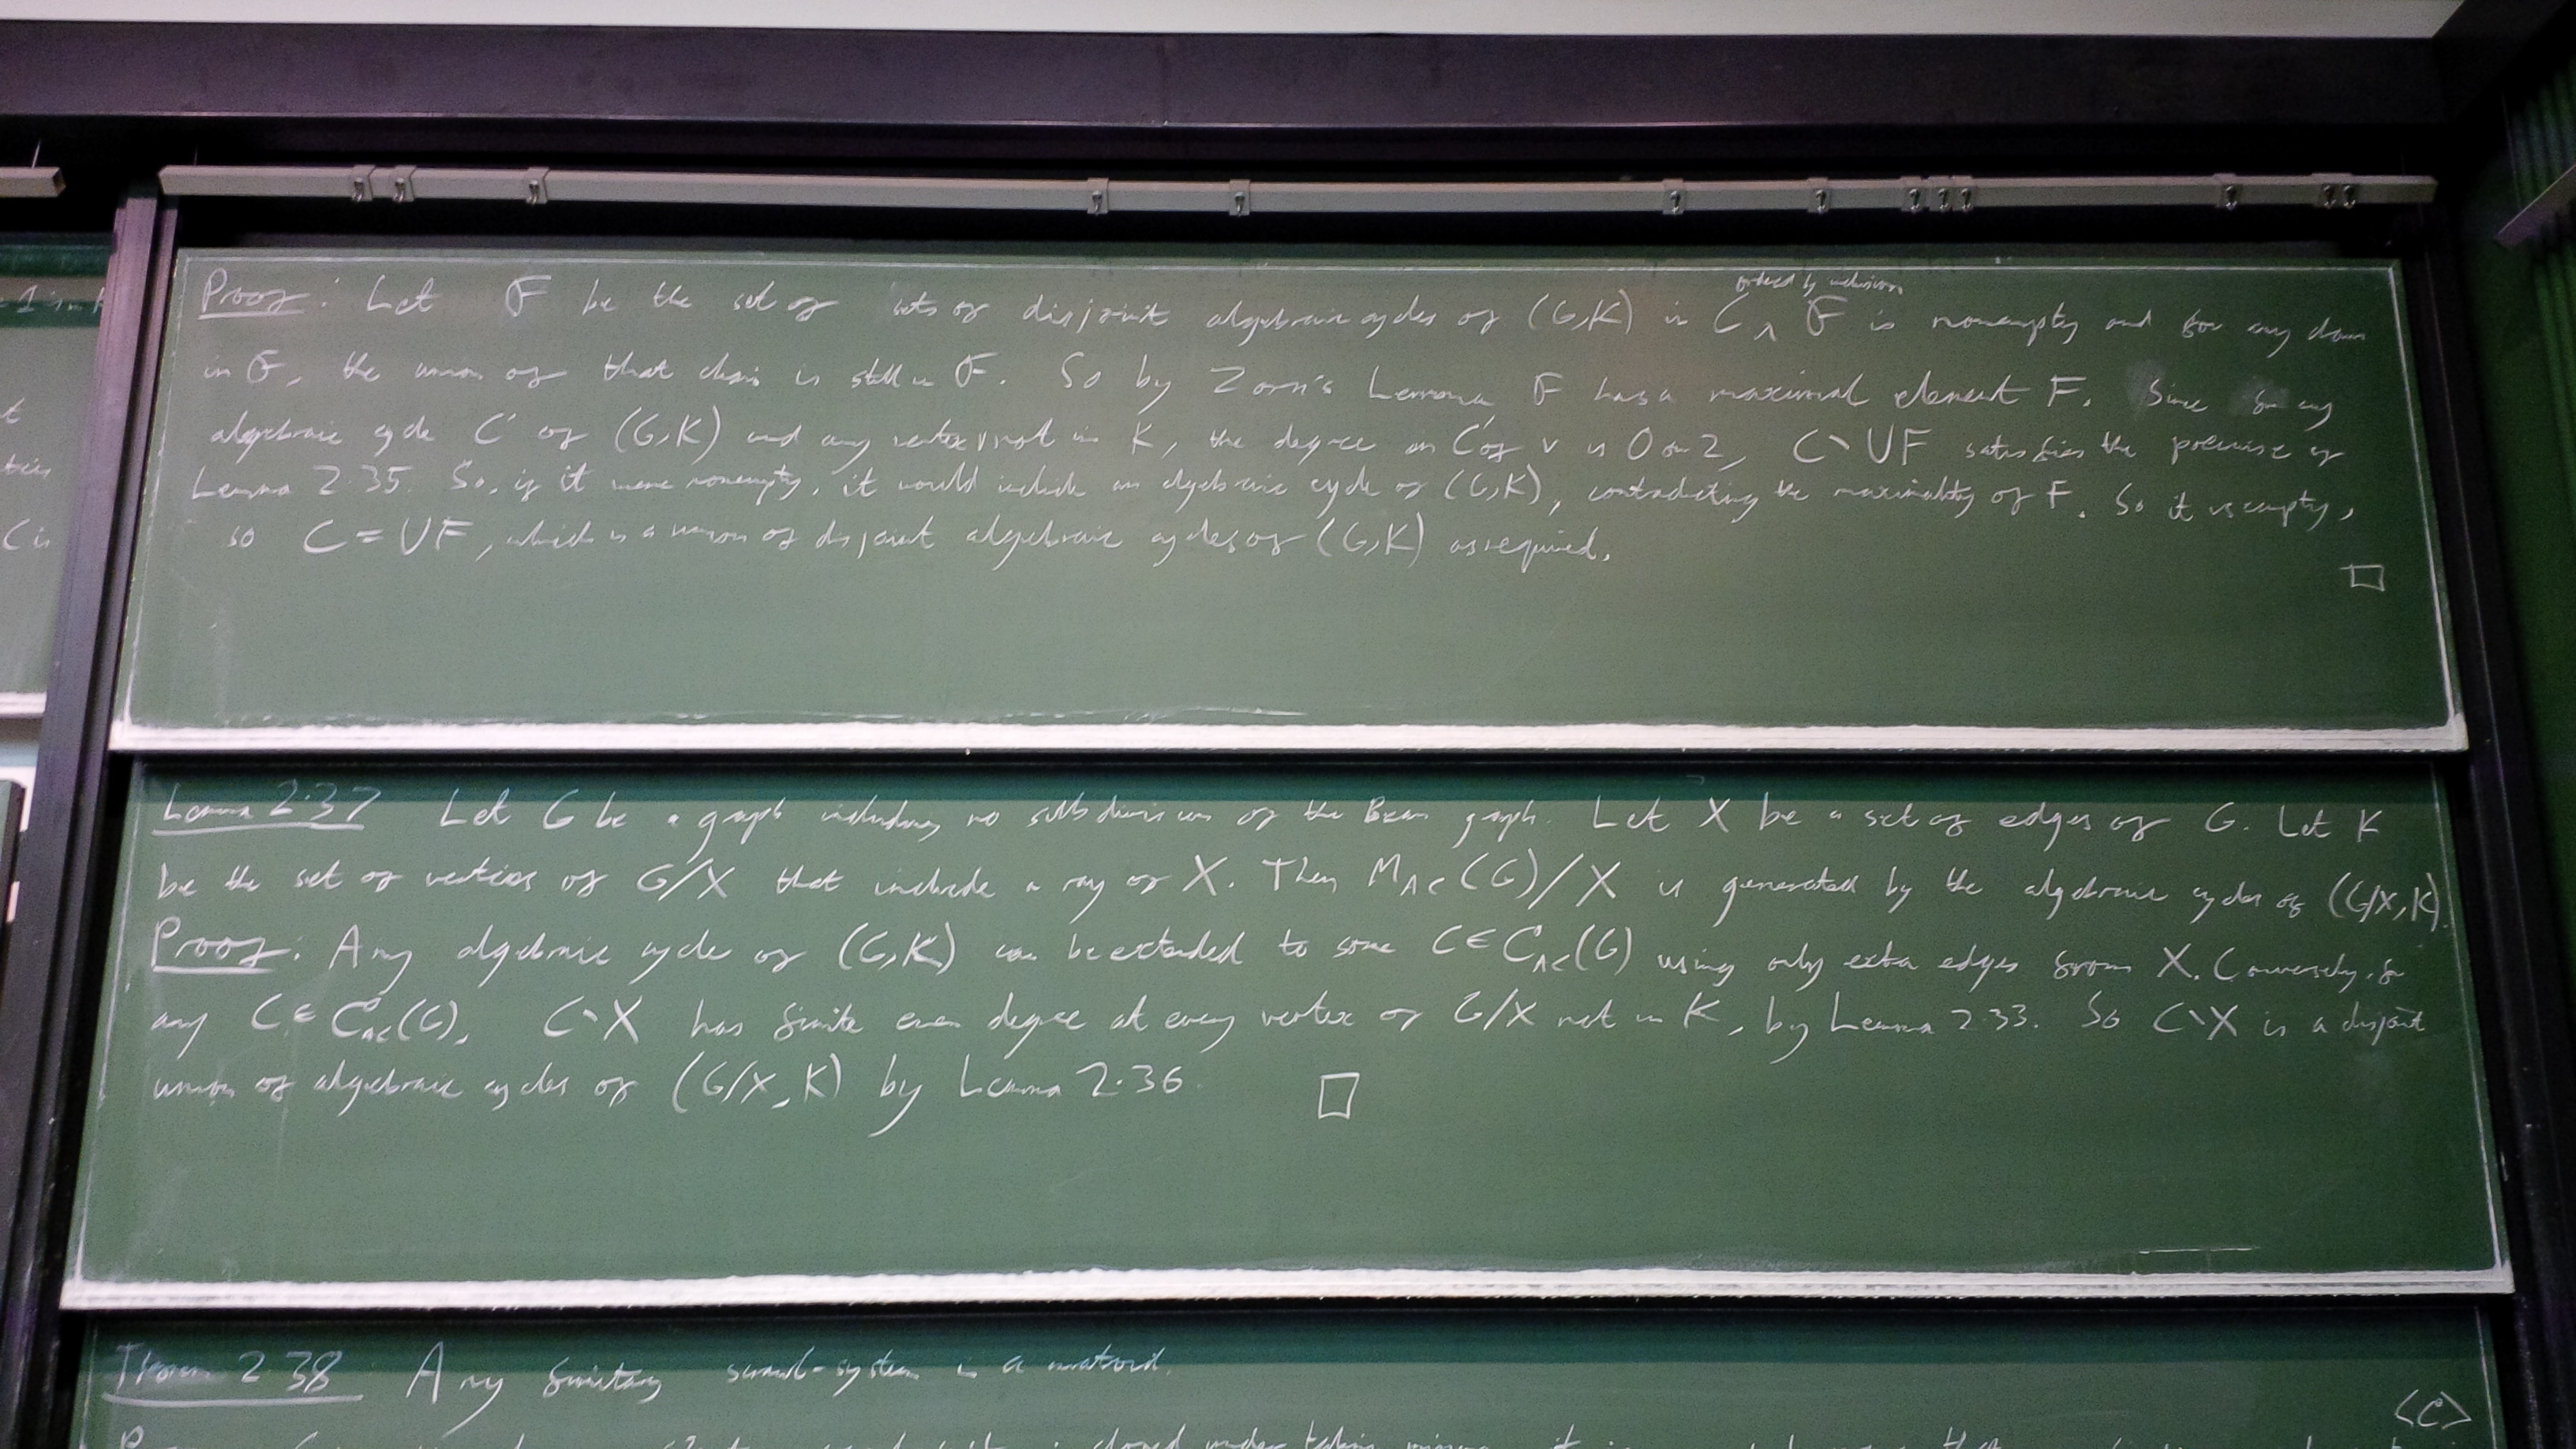 Proof: Let F be the set of sets of disjoint algebraic cycles of (G,K) in C ∧ F is nonempty and for any chain
ordered by inclusion
in F, the union of that chain is still in F. So by Zorn's Lemma F has a maximal element F. Since for any
algebraic cycle C' of (G,K) and any vertex v not in K, the degree in C' of v is 0 or 2, C∖UF satisfies the premise of
Lemma 2.35. So, if it were nonempty, it would include an algebraic cycle of (G,K), contradicting the maximality of F. So it is empty,
so C = UF, which is a union of disjoint algebraic cycles of (G,K) as required. □
Lemma 2.37 Let G be a graph including no subdivision of the Bean graph. Let X be a set of edges of G. Let K
be the set of vertices of G/X that include a ray of X. Then M_AC(G)/X is generated by the algebraic cycles of (G/X,K).
Proof: Any algebraic cycle of (G,K) can be extended to some C ∈ C_AC(G) using only extra edges from X. Conversely, for
any C ∈ C_AC(G), C∖X has finite even degree at every vertex of G/X not in K, by Lemma 2.33. So C∖X is a disjoint
union of algebraic cycles of (G/X, K) by Lemma 2.36. □
Theorem 2.38 Any finitary scrawl-system is a matroid.
<C>
closed under taking minors
C is